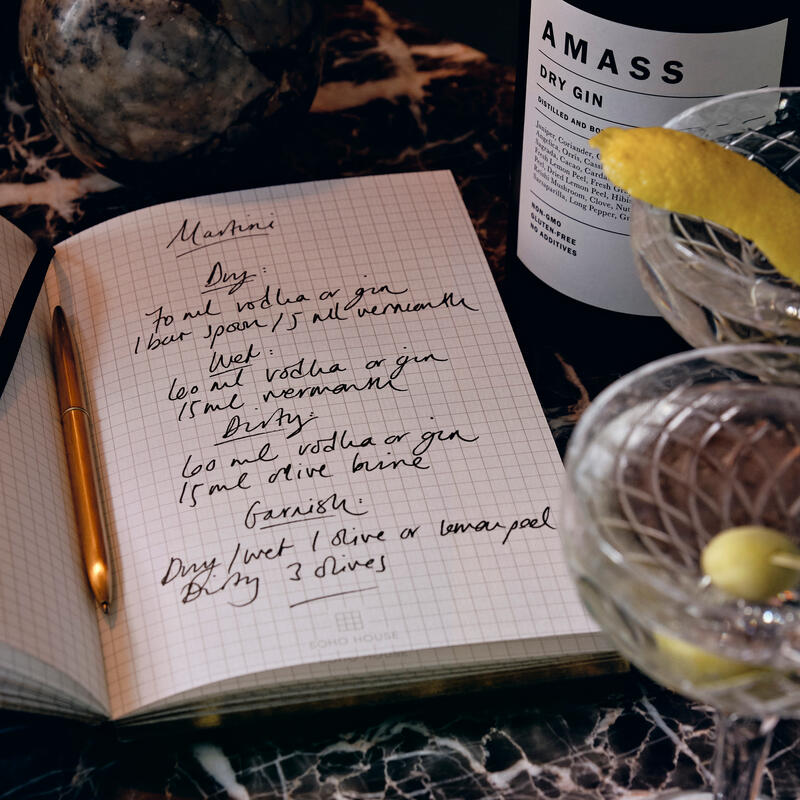 Martini
Dry:
70 ml vodka or gin
1 bar spoon / 5 ml vermouth
Wet:
60 ml vodka or gin
15 ml vermouth
Dirty:
60 ml vodka or gin
15 ml olive brine
Garnish:
Dry / wet 1 olive or lemon peel
Dirty 3 olives
SOHO HOUSE
AMASS
DRY GIN
DISTILLED AND
Juniper, Coriander,
Angelica, Orris,
Cacao,
Fresh Lemon Peel, Fresh
Peel, Dried Lemon Peel,
Reishi Mushroom, Clove,
Sarsaparilla, Long Pepper,
NON-GMO
GLUTEN-FREE
NO ADDITIVES